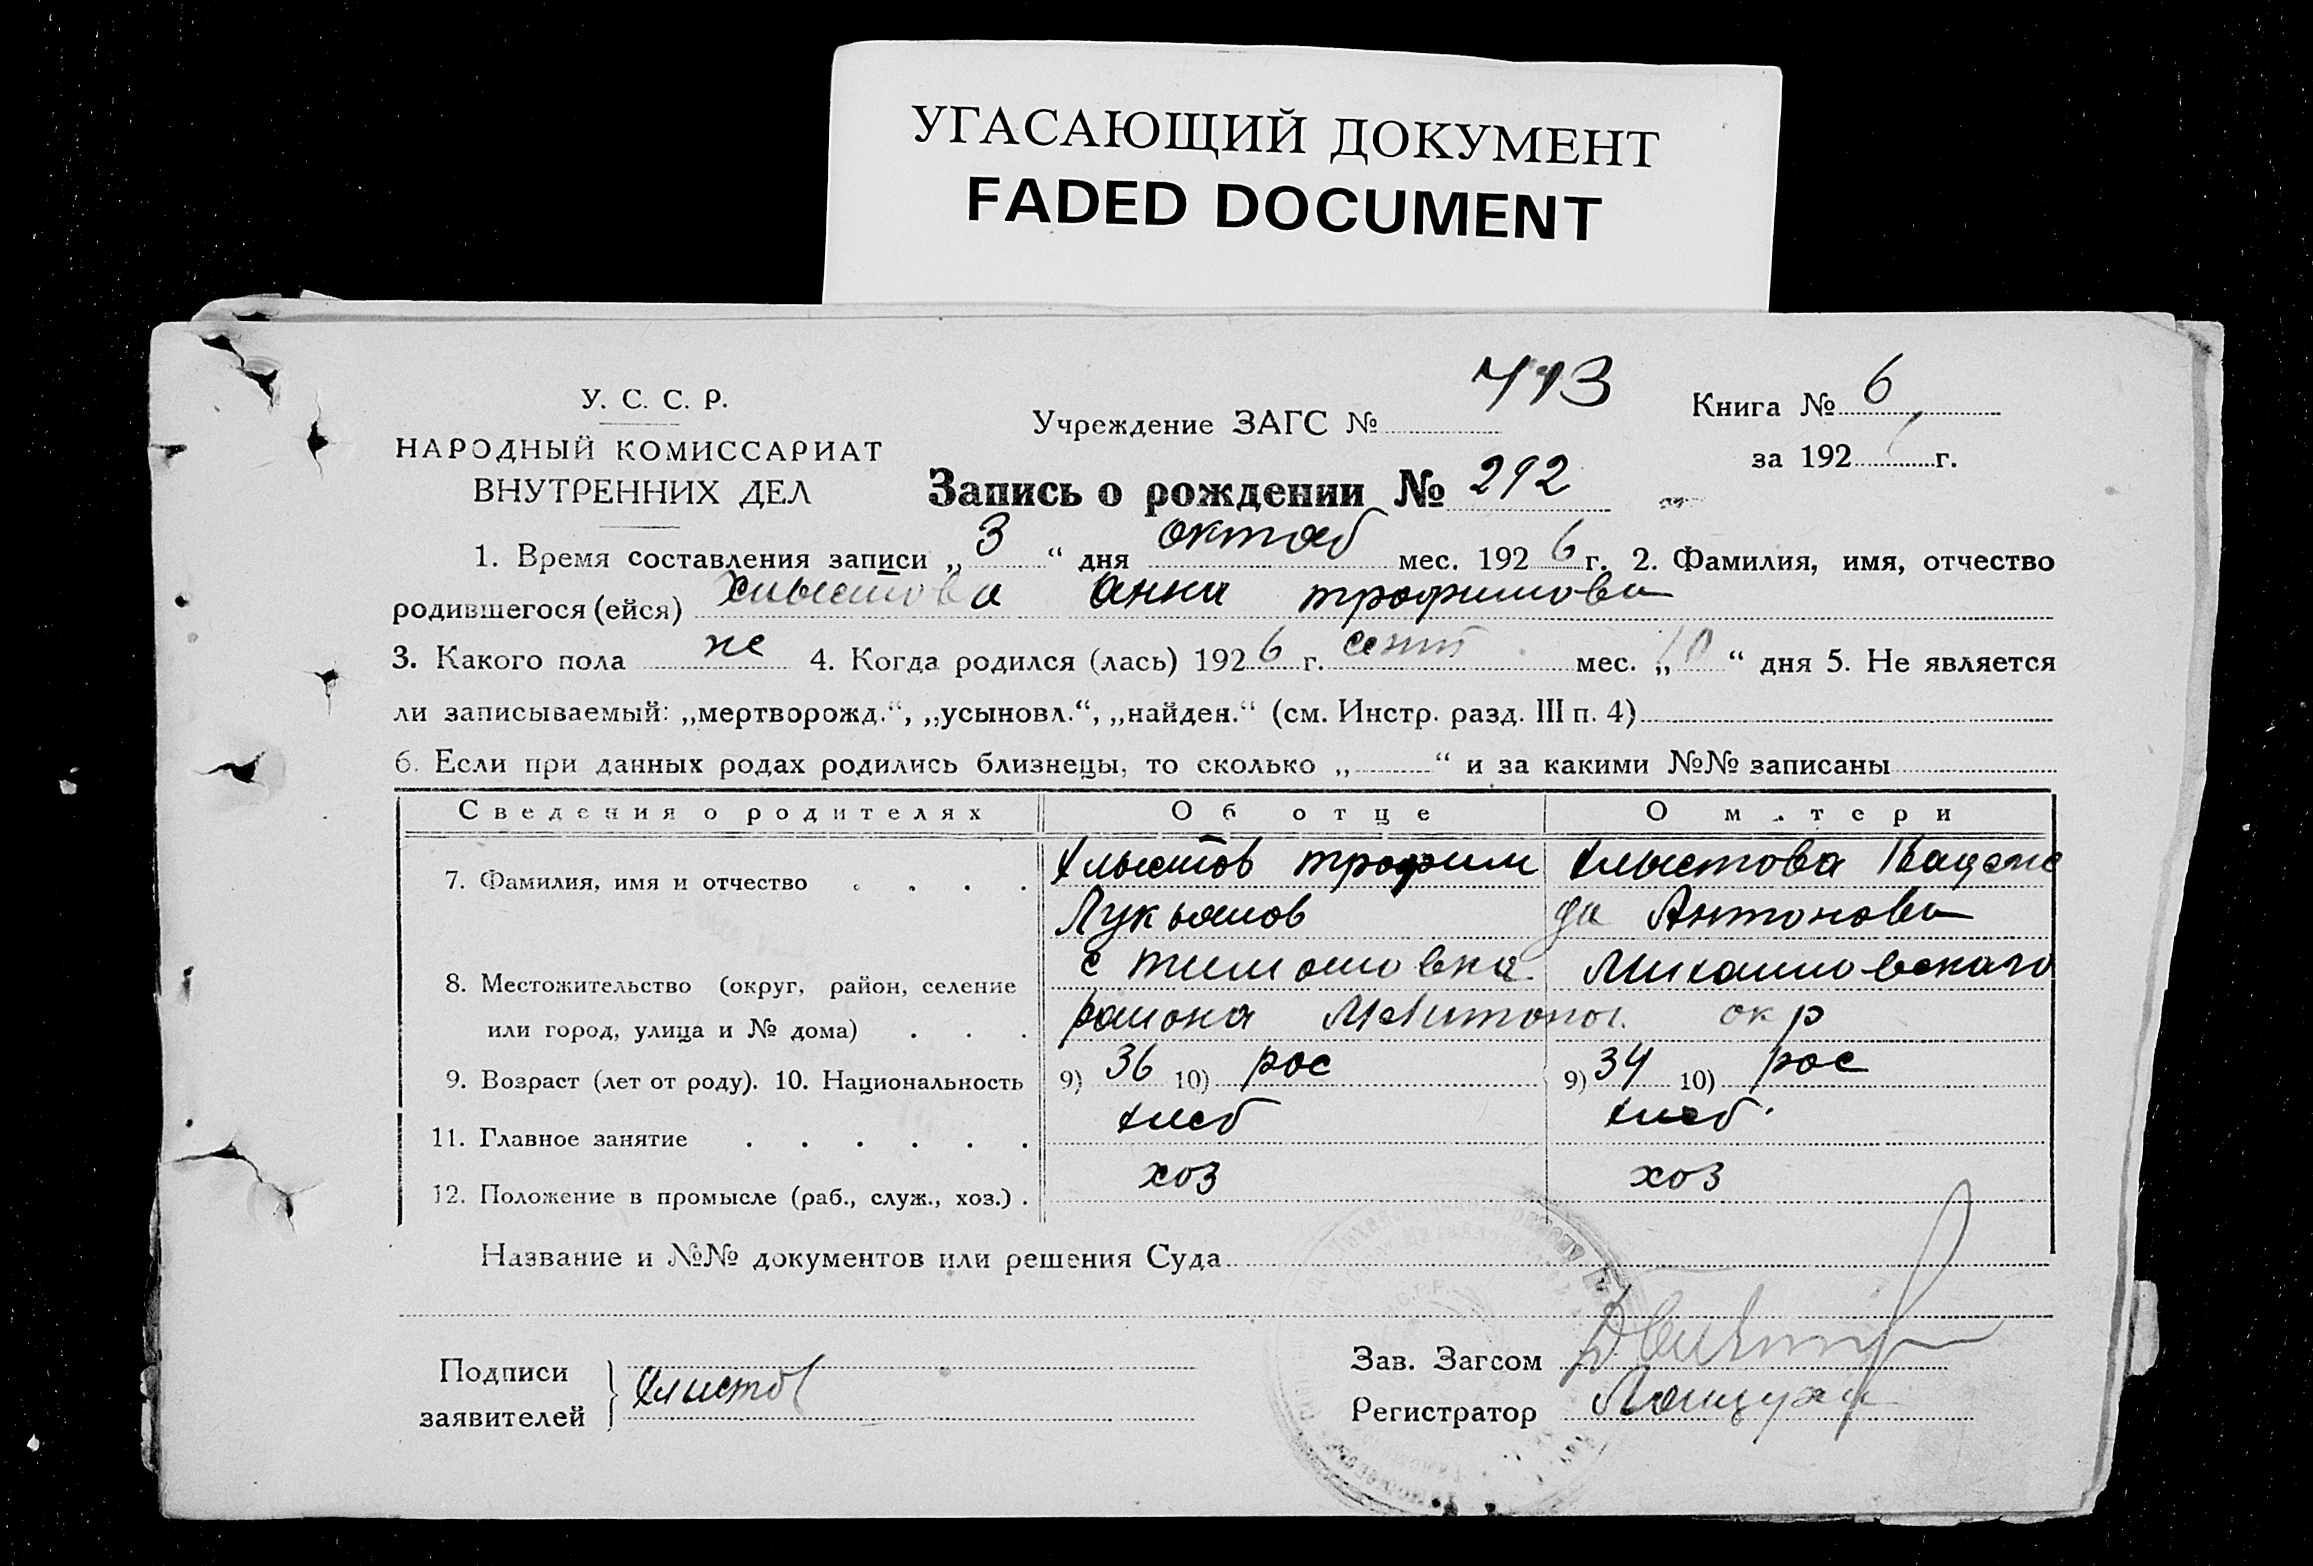 УГАСАЮЩИЙ ДОКУМЕНТ
FADED DOCUMENT
У. С. С. Р.
НАРОДНЫЙ КОМИССАРИАТ
ВНУТРЕННИХ ДЕЛ
Учреждение ЗАГС № 713
Книга № 6
за 192 г.
Запись о рождении № 292
1. Время составления записи „3“ дня октяб мес. 1926 г. 2. Фамилия, имя, отчество
родившегося (ейся) Хлыстова Анна трофимова
3. Какого пола же 4. Когда родился (лась) 1926 г. сент мес. „10“ дня 5. Не является
ли записываемый: „мертворожд.“, „усыновл.“, „найден.“ (см. Инстр. разд. III п. 4)
6. Если при данных родах родились близнецы, то сколько „ “ и за какими №№ записаны
Сведения о родителях Об отце О м.тери
7. Фамилия, имя и отчество . . . . Хлыстов трофим Хлыстова Надеж
Лукьянов да Антонова
8. Местожительство (округ, район, селение с тимошовка Михайловского
или город, улица и № дома) . . . района Мелитопол. окр
9. Возраст (лет от роду). 10. Национальность 9) 36 10) рос 9) 34 10) рос
11. Главное занятие . . . . . . хлеб хлеб
12. Положение в промысле (раб., служ., хоз.) . хоз хоз
Название и №№ документов или решения Суда
Подписи
заявителей } Хлыстов
Зав. Загсом
Регистратор